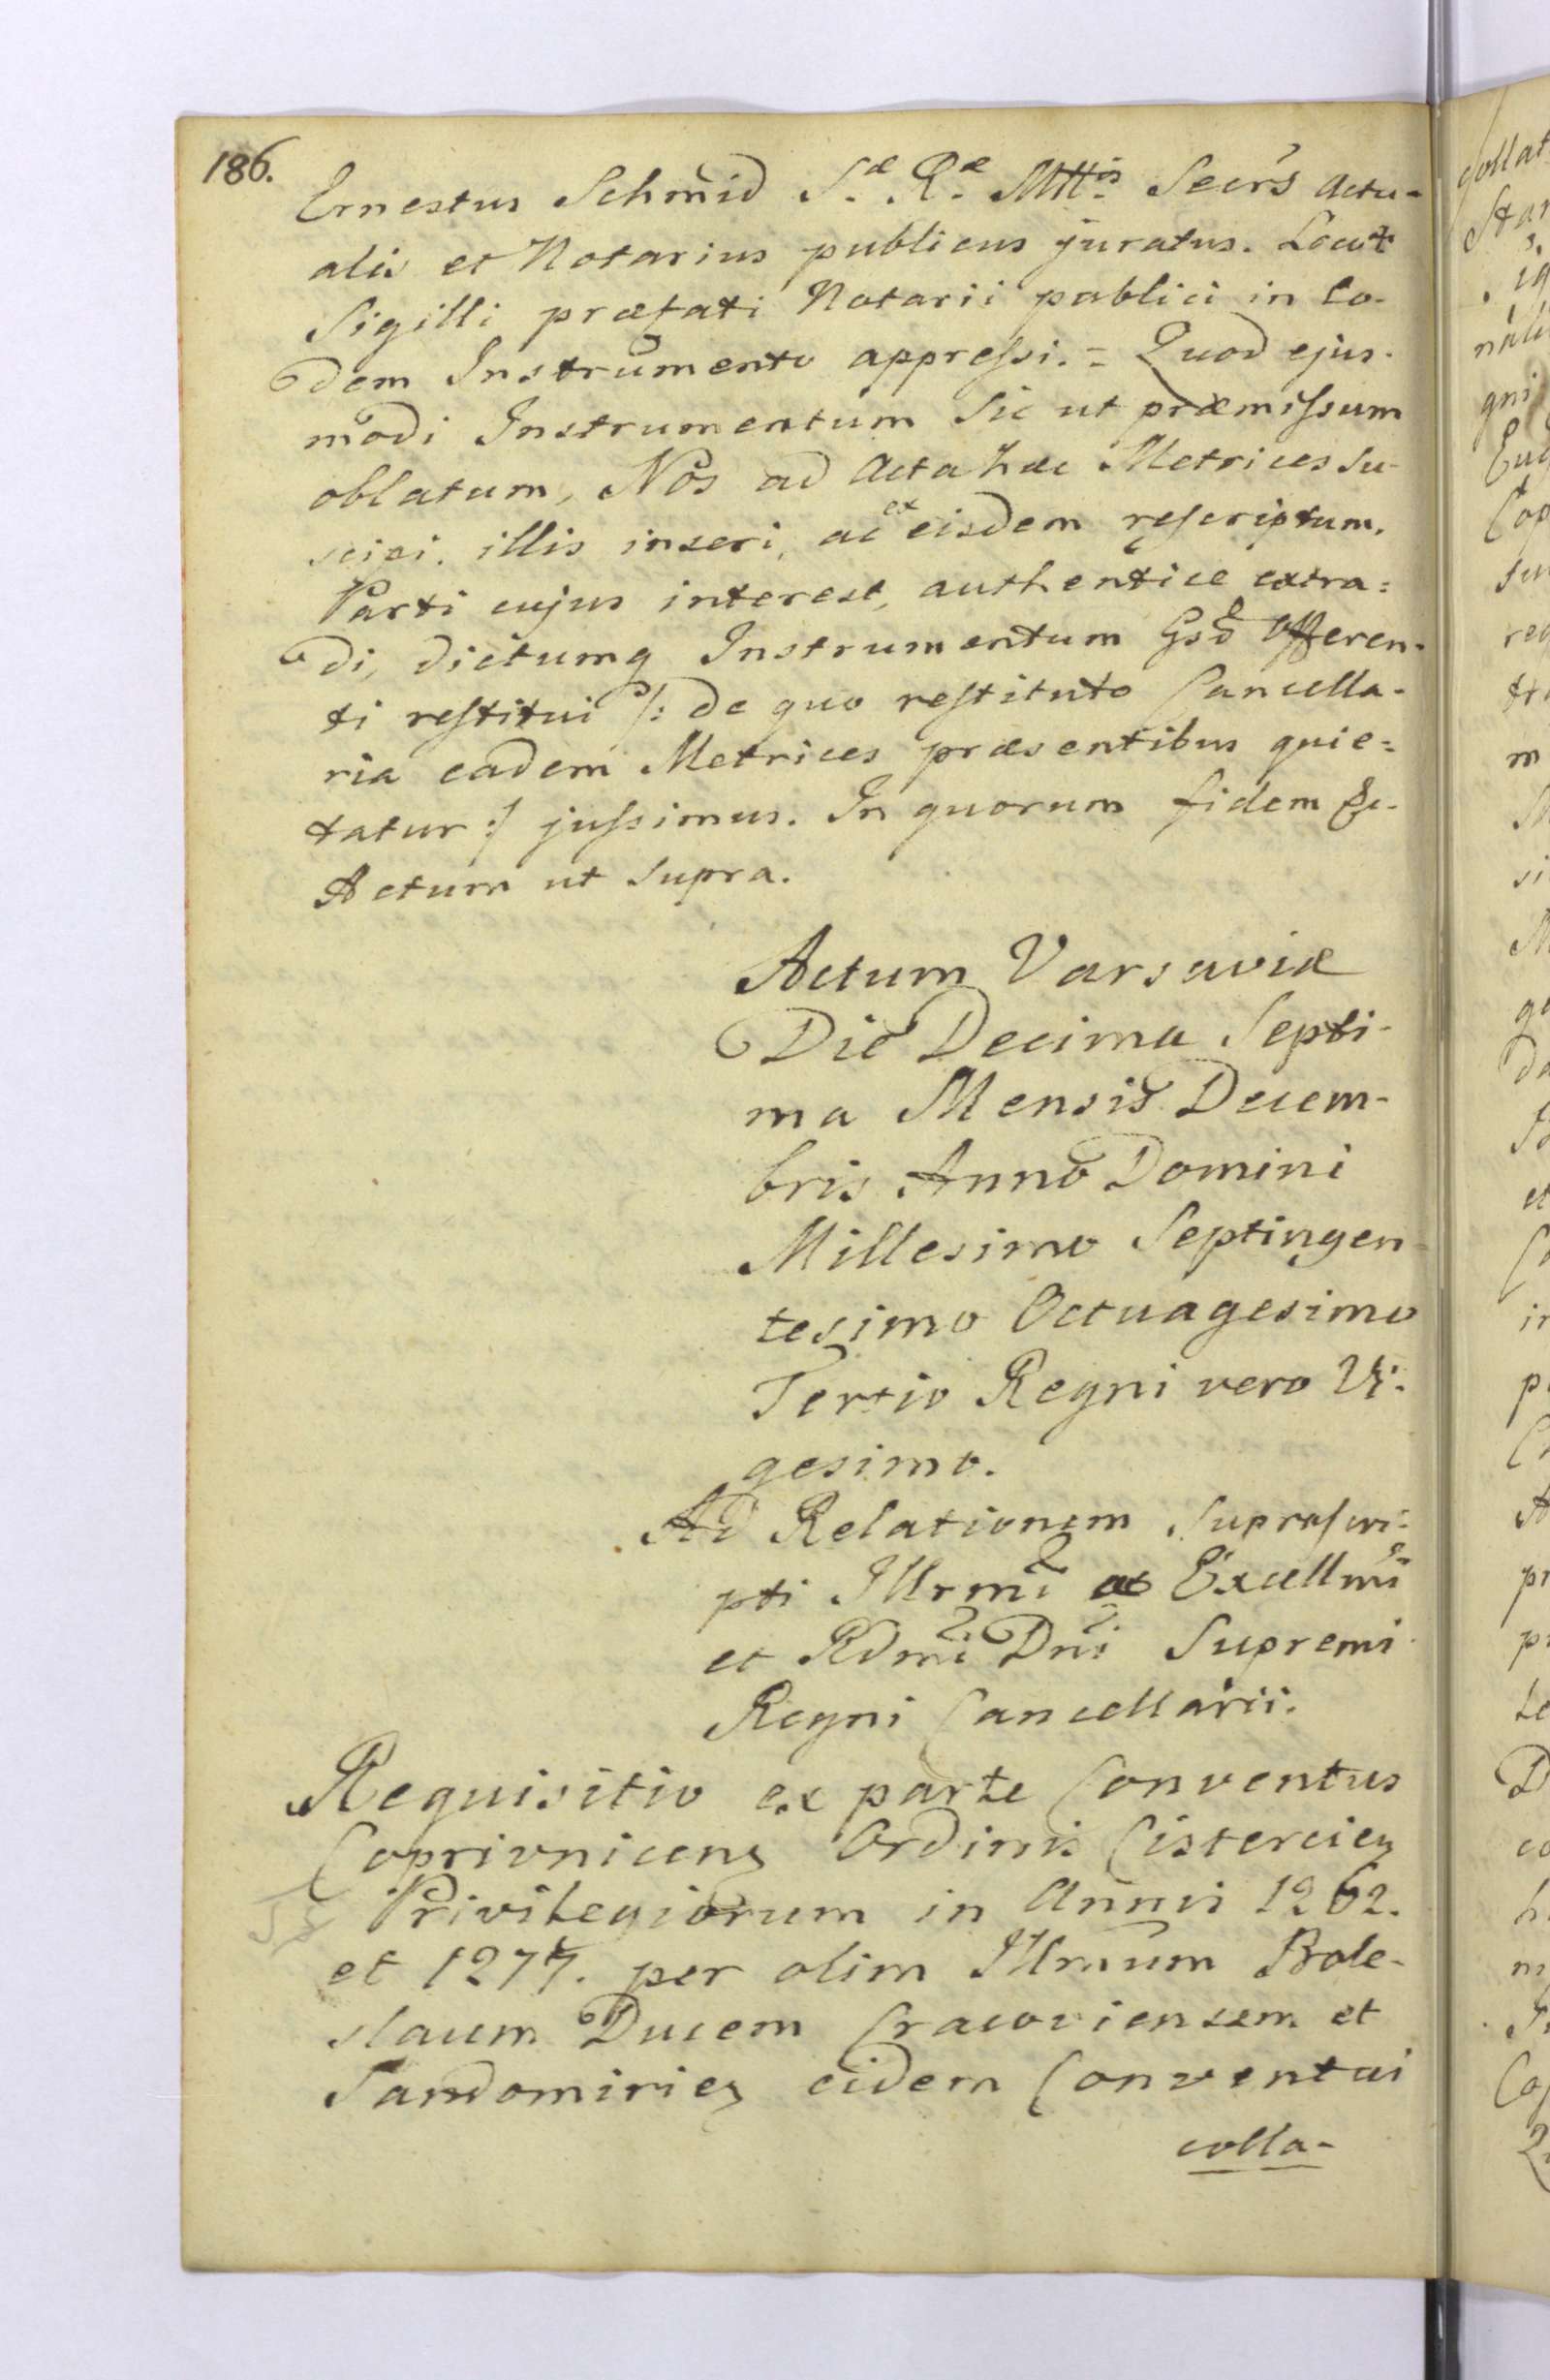 186.
Ernestus Schmid Sæ Ræ Mttis Secrs actu-
alis et Notarius publicus juratus. Locus
Sigilli præfati Notarii publici in eo-
dem Instrumento appressi. = Quod ejus-
modi Instrumentum sic ut præmissum
oblatum, Nos ad Acta hæc Metrices su-
scipi, illis inseri, ac ex eisdem rescriptum.
Parti cujus interest, authentice extra=
di, dictumq Instrumentum Gsd Offeren-
ti restitui /: de quo restituto Cancella-
ria eadem Metrices præsentibus quie=
tatur :/ jussimus. In quorum fidem &c-
Actum ut supra.
Actum Varsaviæ
Die Decima Septi-
ma Mensis Decem-
bris Anno Domini
Millesimo Septingen-
tesimo Octuagesimo
Tertio Regni vero Vi-
gesimo.
Ad Relationem suprascri-
pti Illrmi ac Excellmi
et Rdmi Dni Supremi
Regni Cancellarii.
Requisitio ex parte Conventus
Coprivnicens Ordinis Cistercien
Privilegiorum in Annis 1262.
et 1277. per olim Illmum Bole-
slaum Ducem Cracoviensem et
Sandomirien eidem Conventui
colla-